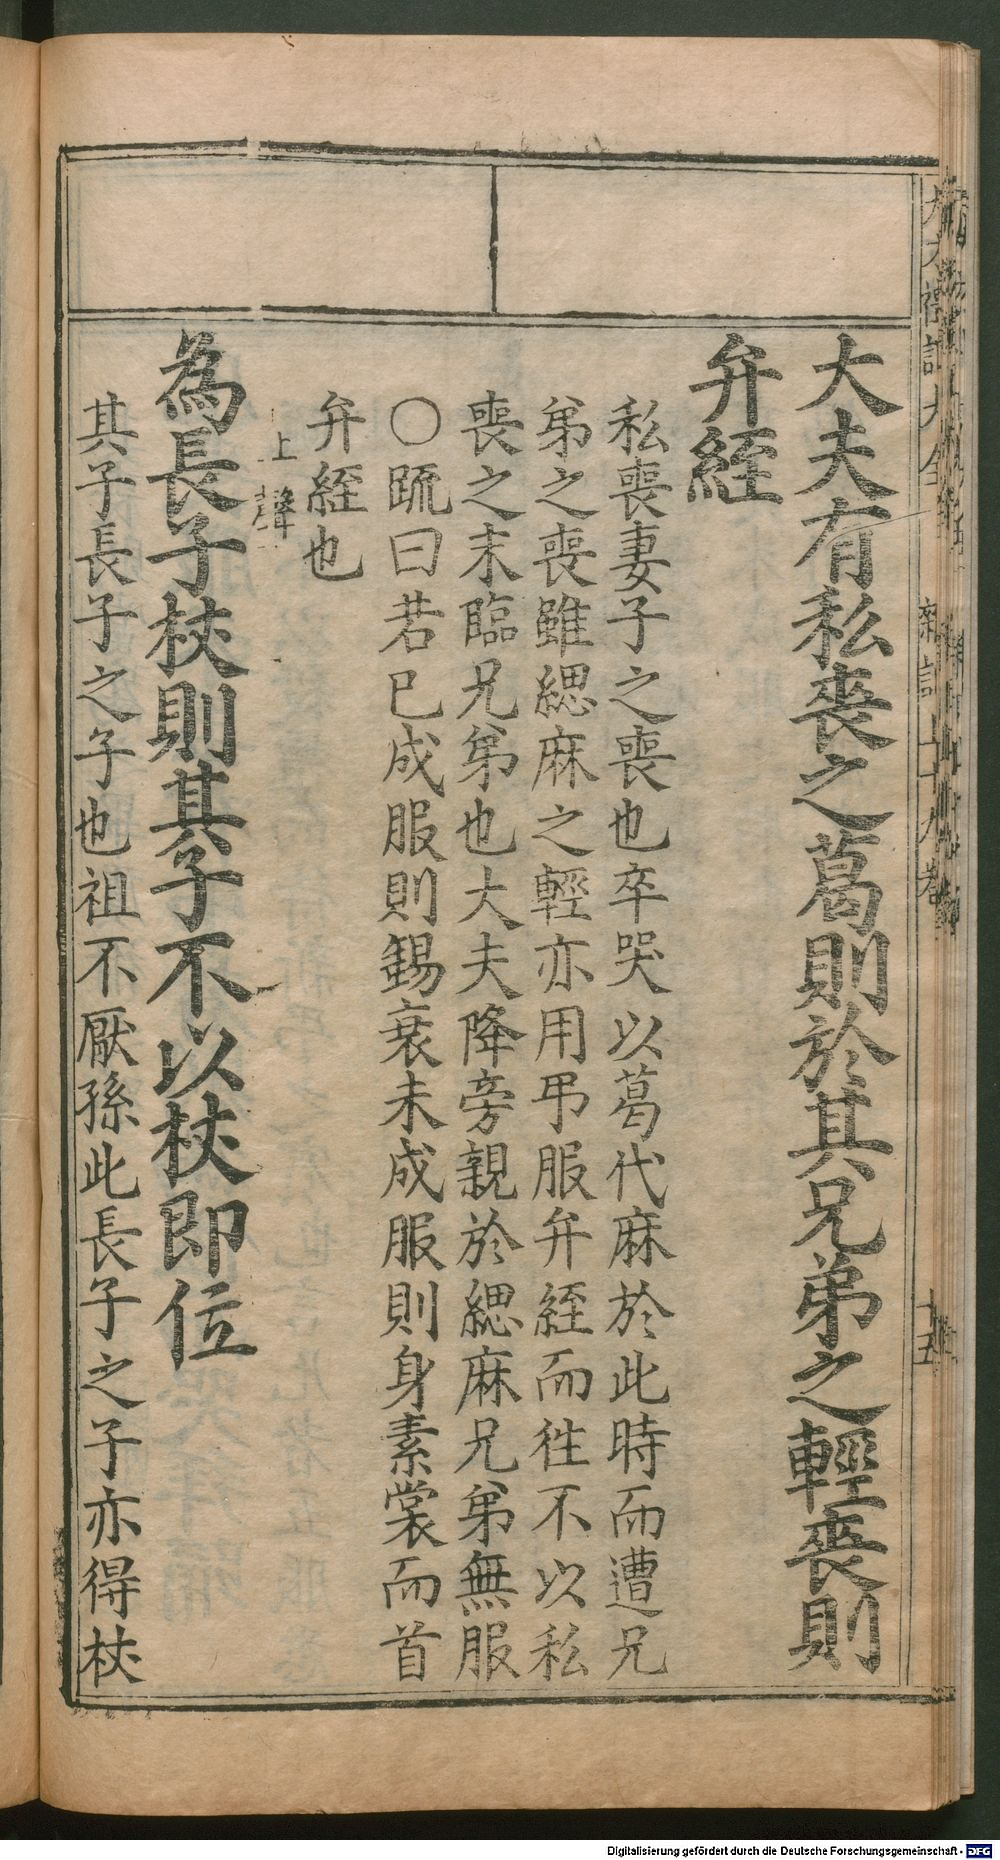 大夫有私喪之葛則於其兄弟之輕喪則
弁絰
私喪妻子之喪也卒哭以葛代麻於此時而遭兄
弟之喪雖緦麻之輕亦用弔服弁絰而徃不以私
喪之末臨兄弟也大夫降旁親於緦麻兄弟無服
〇䟽曰若已成服則錫衰未成服則身素裳而首
弁絰也
上聲
為長子杖則其子不以杖即位
其子長子之子也祖不厭孫此長子之子亦得杖
Digitalisierung gefördert durch die Deutsche Forschungsgemeinschaft - DFG